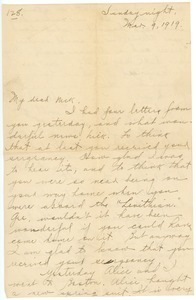 128.
Sunday night
Mar. 9, 1919
My dear
I had four letters from
you yesterday, and what won-
derful news, too. To think
that at last you received your
surgency. How glad I was
to hear it, and to think that
you were so near being on
your way home when you
were aboard the "Leviathan".
Gee, wouldn't it have been
wonderful if you could have
come home on it. But anyway
I am glad to know that you
received your surgency.
Yesterday Alice and I
went to Boston. Alice bought
a new